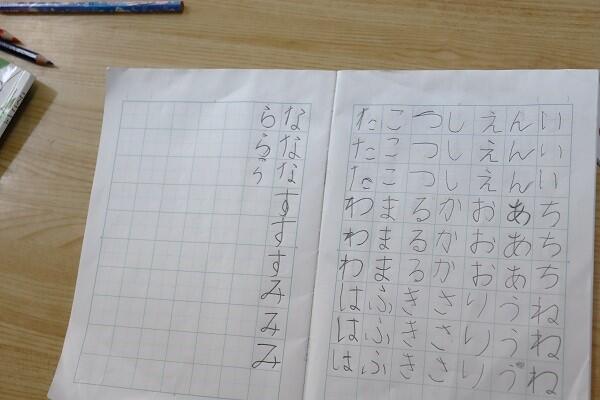 いいいちちちねねね
んんんあああううう
えええおおおりりり
しししかかかさささ
つつつるるるききき
こここまままふふふ
たたたわわわははは
なななすすすみみみ
ららら